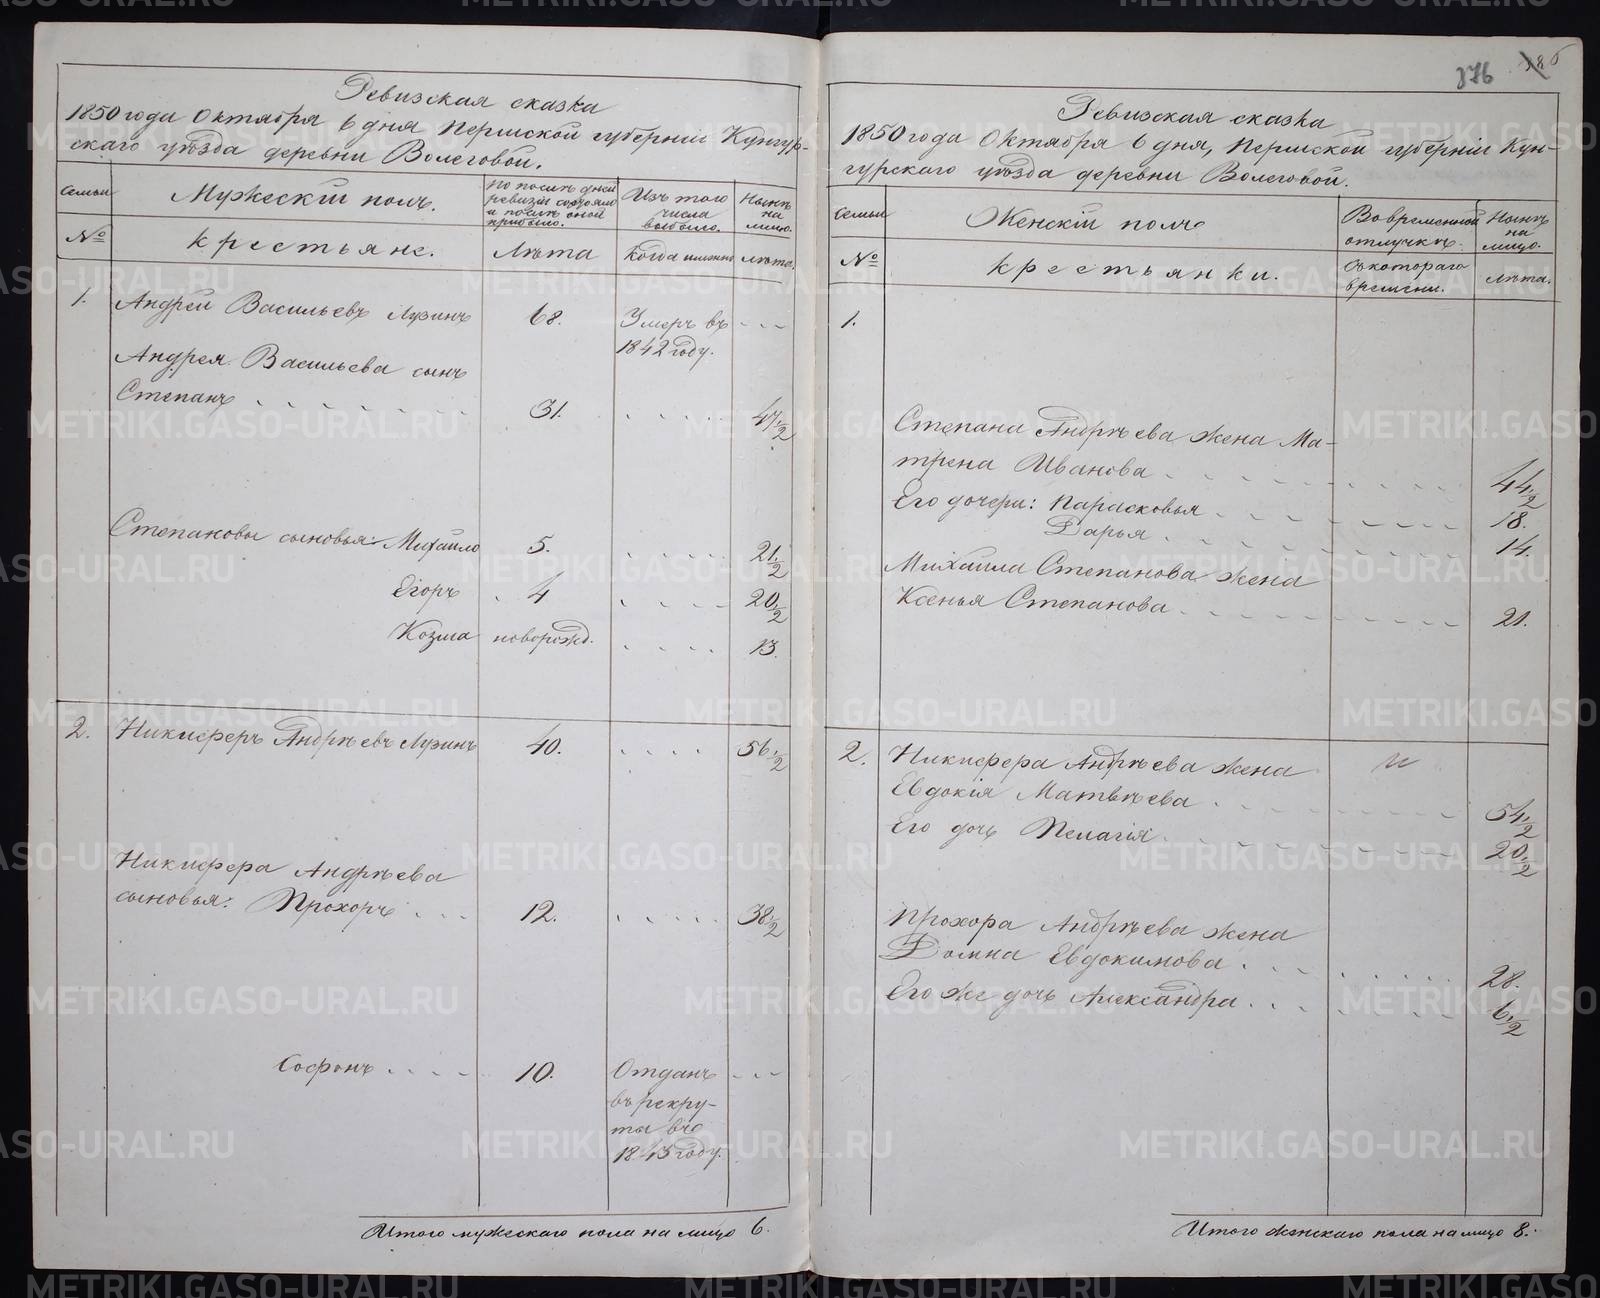 376
Ревизская сказка
1850 года Октября 6 дня Пермской губернiи Кунгур-
скаго уѣзда деревни Волеговой.
Семьи
Мужескiй полъ.
По послѣдней
ревизiи состояло
и послѣ оной
прибыло.
Изъ того
числа
выбыло.
Нынѣ
на
лицо.
№
крестьяне.
Лѣта
Когда именно
лѣта.
1. Андрей Васильевъ Лузинъ 68. Умеръ въ
1842 году.
Андрея Васильева сынъ
Степанъ 31. 47 1/2
Степановы сыновья: Михайло 5. 21 1/2
Егоръ 4 20 1/2
Козма новорожд. 13.
2. Никиферъ Андрѣевъ Лузинъ 40. 56 1/2
Никифера Андрѣева
сыновья: Прохоръ 12. 38 1/2
Софонъ 10. Отданъ
въ рекру-
ты въ
1843 году.
Итого мужескаго пола на лицо 6.
Ревизская сказка
1850 года Октября 6 дня, Пермской губернiи Кун-
гурскаго уѣзда деревни Волеговой.
Семьи
Женскiй полъ
Во временной
отлучкѣ.
Нынѣ
на
лицо.
№
крестьянки.
Съ котораго
времени.
Лѣта.
1.
Степана Андрѣева жена Ма-
трена Иванова 44 1/2
Его дочери: Парасковья 18.
Дарья 14.
Михайла Степанова жена
Ксенья Степанова 21.
2. Никифера Андрѣева жена
Евдокiя Матвѣева 54 1/2
Его дочь Пелагiя 20 1/2
Прохора Андрѣева жена
Домна Евдокимова 28.
Его же дочь Александра 6 1/2
Итого женскаго пола на лицо 8.
METRIKI.GASO-URAL.RU